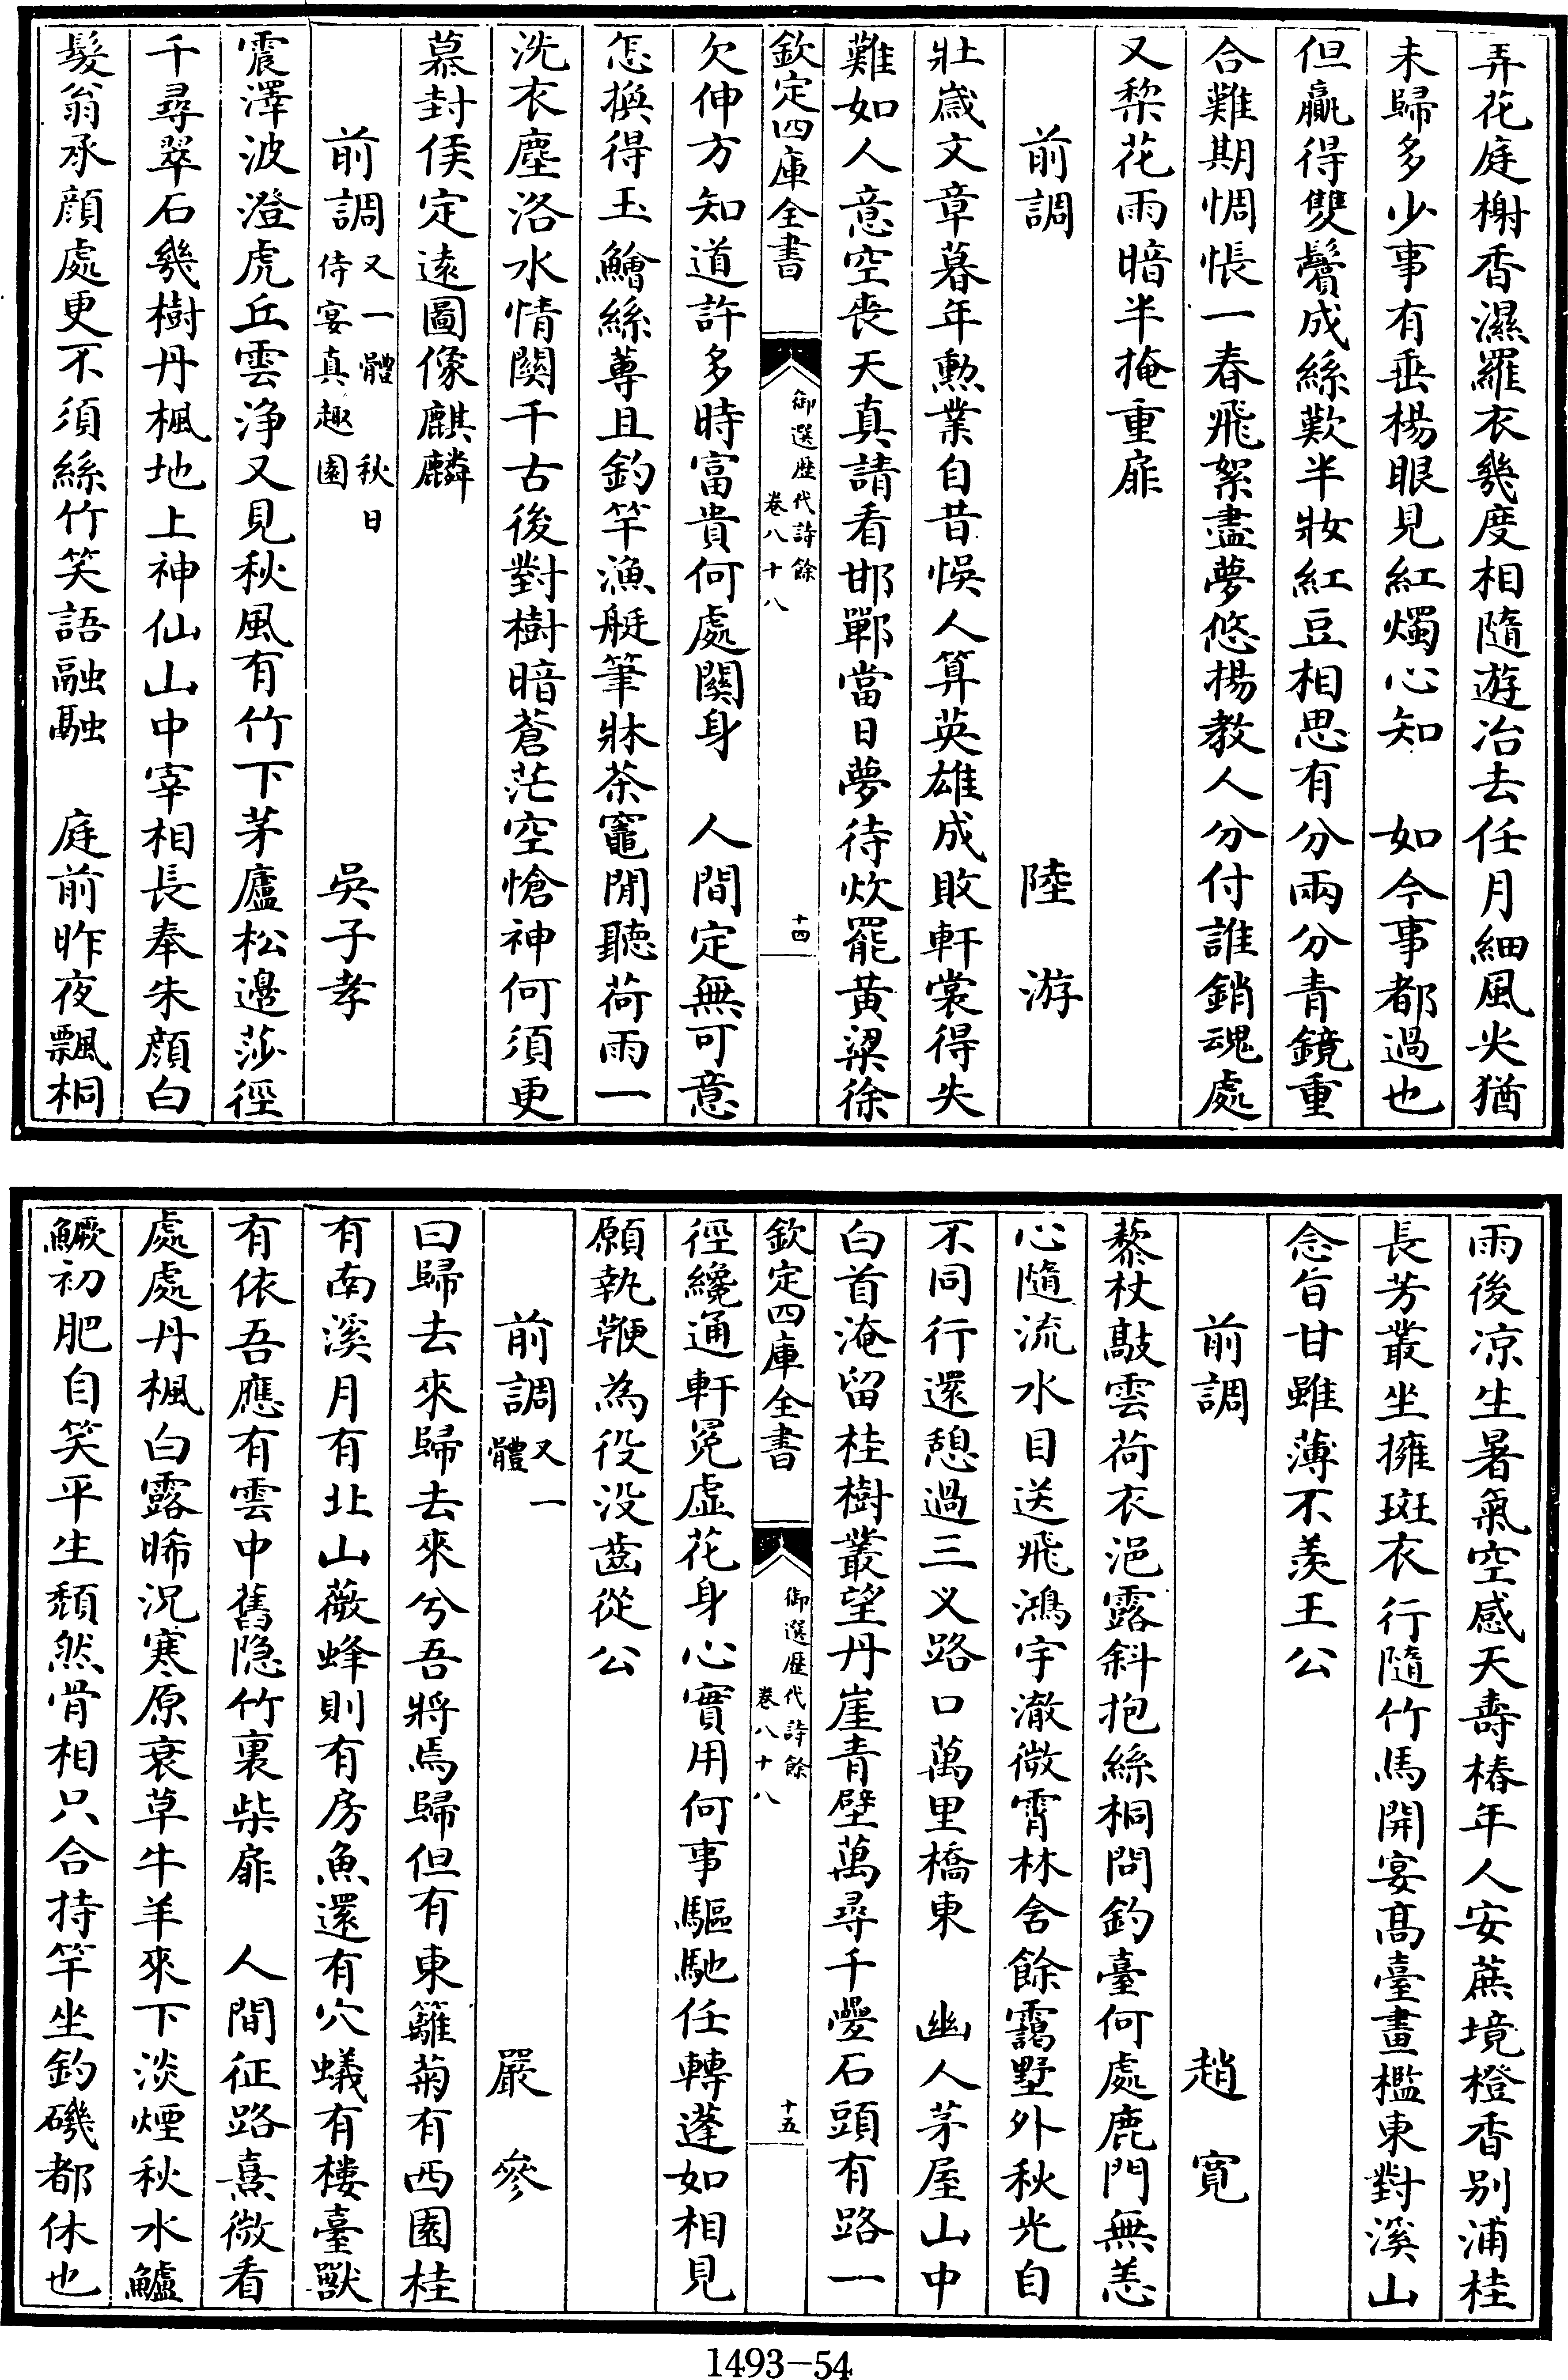 弄花庭榭香濕羅衣幾度相隨遊冶去任月細風尖猶
未歸多少事有垂楊眼見紅燭心知　如今事都過也
但贏得雙鬢成絲歎半妝紅豆相思有分兩分青鏡重
合難期惆悵一春飛絮盡夢悠揚教人分付誰銷魂處
又梨花雨暗半掩重扉
前調　陸游
壯歲文章暮年勲業自昔悞人算英雄成敗軒裳得失
難如人意空喪天真請看邯鄲當日夢待炊罷黃粱徐
欽定四庫全書　御選歷代詩餘　卷八十八　十四
欠伸方知道許多時富貴何處關身　人間定無可意
怎換得玉鱠絲蓴且釣竿漁艇筆牀茶竈閒聽荷雨一
洗衣塵洛水情關千古後對樹暗蒼茫空愴神何須更
慕封侯定遠圖像麒麟
前調又一體　秋日侍宴真趣園　吳子孝
震澤波澄虎丘雲浄又見秋風有竹下茅廬松邊莎徑
千尋翠石幾樹丹楓地上神仙山中宰相長奉朱顔白
髮翁承顔處更不須絲竹笑語融融　庭前昨夜飄桐
雨後凉生暑氣空感天壽椿年人安蔗境橙香别浦桂
長芳叢坐擁斑衣行隨竹馬開宴髙臺畫檻東對溪山
念旨甘雖薄不羨王公
前調　趙寛
藜杖敲雲荷衣浥露斜抱絲桐問釣臺何處鹿門無恙
心隨流水目送飛鴻宇澈微霄林含餘靄墅外秋光自
不同行還憩過三义路口萬里橋東　幽人茅屋山中
白首淹留桂樹叢望丹崖青壁萬尋千疊石頭有路一
欽定四庫全書　御選歷代詩餘　卷八十八　十五
徑纔通軒冕虛花身心實用何事驅馳任轉蓬如相見
願執鞭為役没齒從公
前調又一體　嚴參
曰歸去來歸去來兮吾將焉歸但有東籬菊有西園桂
有南溪月有北山薇蜂則有房魚還有穴蟻有樓臺獸
有依吾應有雲中舊隐竹裏柴扉　人間征路熹微看
處處丹楓白露晞況寒原衰草牛羊來下淡煙秋水鱸
鱖初肥自笑平生頽然骨相只合持竿坐釣磯都休也
1493—54